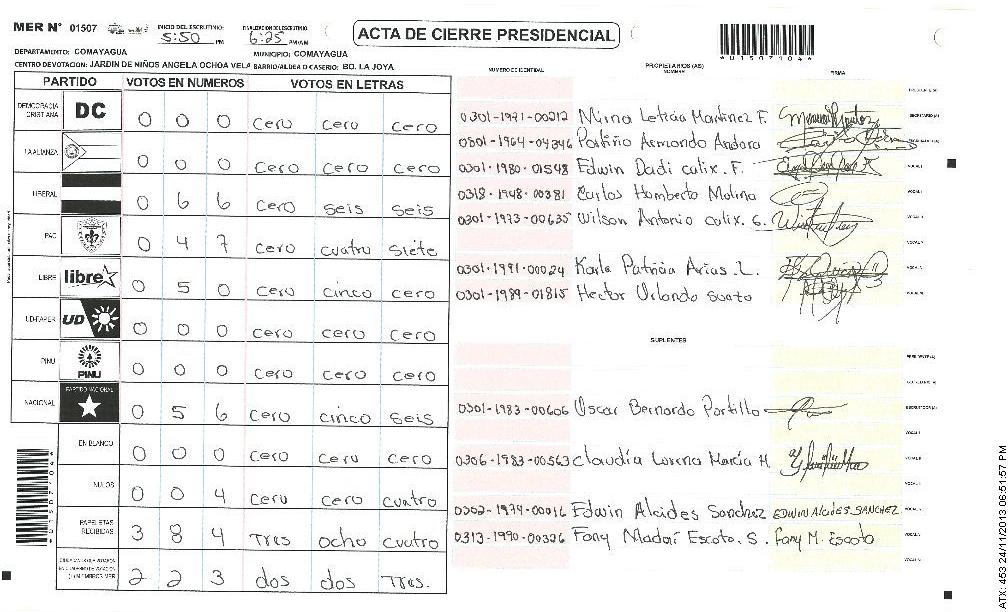 MER N° 01507
INICIO DEL ESCRUTINIO: 5:50 PM
FINALIZACION DEL ESCRUTINIO: 6:25 PM/AM
ACTA DE CIERRE PRESIDENCIAL
*01507104*
DEPARTAMENTO: COMAYAGUA MUNICIPIO: COMAYAGUA
CENTRO DE VOTACION: JARDIN DE NIÑOS ANGELA OCHOA VELA BARRIO/ALDEA O CASERIO: BO. LA JOYA
PARTIDO VOTOS EN NUMEROS VOTOS EN LETRAS
DEMOCRACIA CRISTIANA DC 0 0 0 cero cero cero
LA ALIANZA 0 0 0 cero cero cero
LIBERAL 0 6 6 cero seis seis
PAC 0 4 7 cero cuatro siete
LIBRE libre 0 5 0 cero cinco cero
UD-FAPER UD 0 0 0 cero cero cero
PINU PINU 0 0 0 cero cero cero
NACIONAL PARTIDO NACIONAL 0 5 6 cero cinco seis
EN BLANCO 0 0 0 cero cero cero
NULOS 0 0 4 cero cero cuatro
PAPELETAS RECIBIDAS 3 8 4 Tres ocho cuatro
2 2 3 dos dos Tres.
NUMERO DE IDENTIDAD PROPIETARIOS (AS) NOMBRE FIRMA
0301-1971-00212 Mirna Leticia Martinez F.
0801-1964-04346 Patiño Armando Andara
0301-1980-01548 Edwin Dadi calix. F.
0318-1948-00381 Carlos Humberto Molina
0301-1973-00635 Wilson Antonio calix. G.
0301-1991-00024 Karla Patricia Arias. L.
0301-1989-01815 Hector Orlando
SUPLENTES
0301-1983-00606 Oscar Bernardo Portillo
0306-1983-00563 Claudia Lorena Marcía H.
0302-1979-00016 Edwin Alcides Sanchez EDWIN ALCIDES SANCHEZ
0313-1990-00326 Fany Madaí Escoto. S. Fany M. Escoto
*01507104*
ATX: 453 24/11/2013 06:51:57 PM